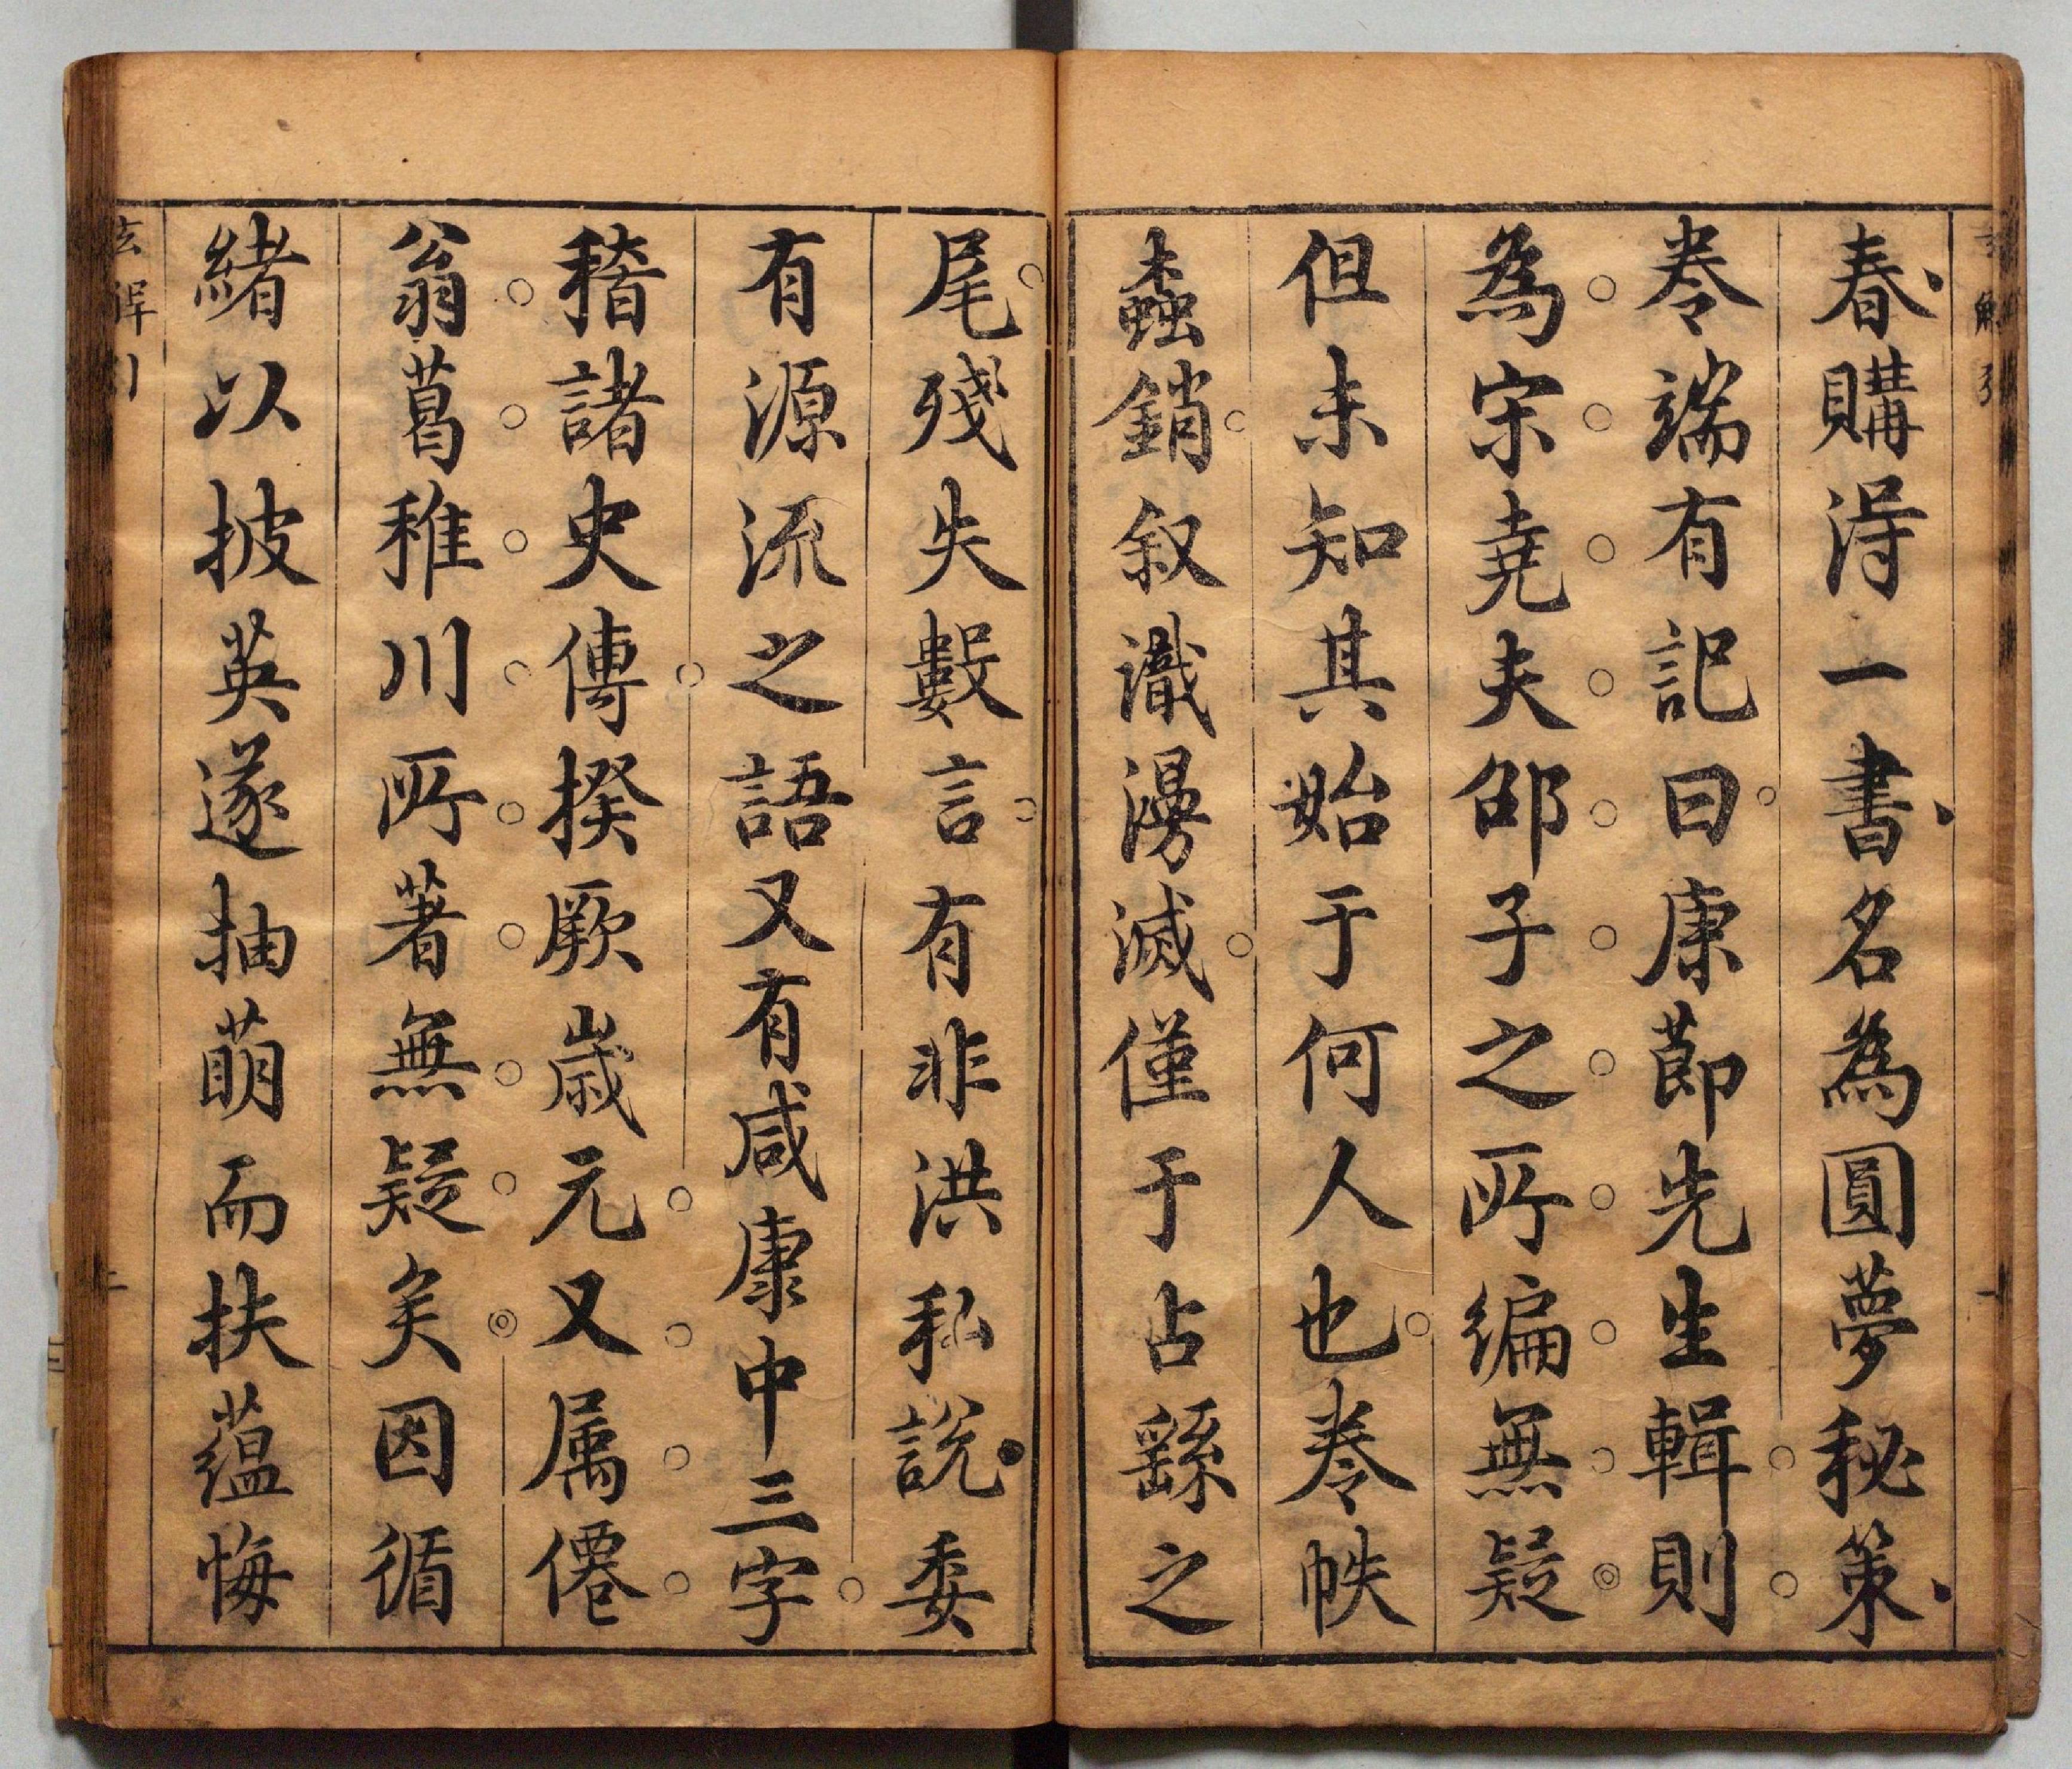 春購淂一書名為圓夢秘策
卷端有記曰康節先生輯則
為宋堯夫邵子之所編無疑
但未知其始于何人也卷帙
蠧銷叙識漫滅僅于占繇之
尾殘失數言有非洪私說委
有源流之語又有咸康中三字
稽諸史傳揆厥歳元又属僊
翁葛稚川所著無疑矣因循
緒以披英遂抽萌而扶蕴悔
玄解引
一
玄解引
二